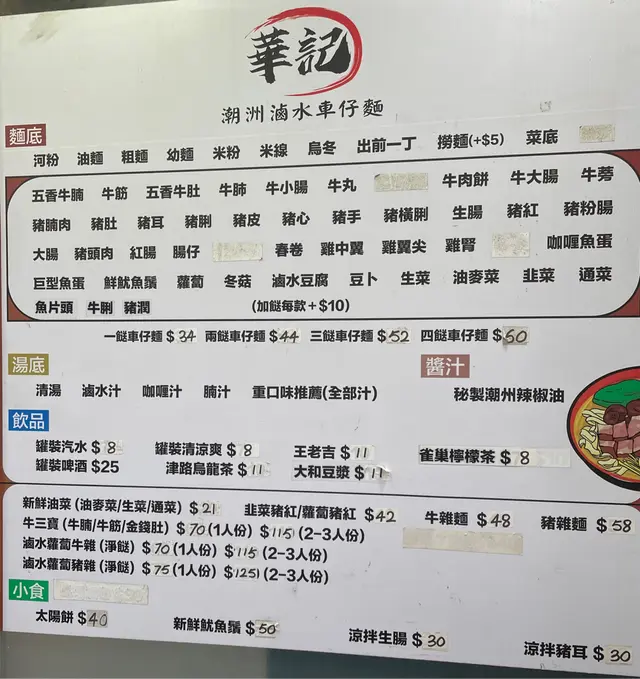 華記
潮洲滷水車仔麵
麵底
河粉 油麵 粗麵 幼麵 米粉 米線 烏冬 出前一丁 撈麵(+$5) 菜底
五香牛腩 牛筋 五香牛肚 牛肺 牛小腸 牛丸 牛肉餅 牛大腸 牛蒡
豬腩肉 豬肚 豬耳 豬脷 豬皮 豬心 豬手 豬橫脷 生腸 豬紅 豬粉腸
大腸 豬頭肉 紅腸 腸仔 春卷 雞中翼 雞翼尖 雞腎 咖喱魚蛋
巨型魚蛋 鮮魷魚鬚 蘿蔔 冬菇 滷水豆腐 豆卜 生菜 油麥菜 韭菜 通菜
魚片頭 牛脷 豬潤 (加餸每款+$10)
一餸車仔麵 $34 兩餸車仔麵 $44 三餸車仔麵 $52 四餸車仔麵 $60
湯底 醬汁
清湯 滷水汁 咖喱汁 腩汁 重口味推薦(全部汁) 秘製潮州辣椒油
飲品
罐裝汽水 $8 罐裝清涼爽 $8 王老吉 $11 雀巢檸檬茶 $8
罐裝啤酒 $25 津路烏龍茶 $11 大和豆漿 $11
新鮮油菜 (油麥菜/生菜/通菜) $21 韭菜豬紅/蘿蔔豬紅 $42 牛雜麵 $48 豬雜麵 $58
牛三寶 (牛腩/牛筋/金錢肚) $70 (1人份) $115 (2-3人份)
滷水蘿蔔牛雜 (淨餸) $70 (1人份) $115 (2-3人份)
滷水蘿蔔豬雜 (淨餸) $75 (1人份) $125 (2-3人份)
小食
太陽餅 $40 新鮮魷魚鬚 $50 涼拌生腸 $30 涼拌豬耳 $30